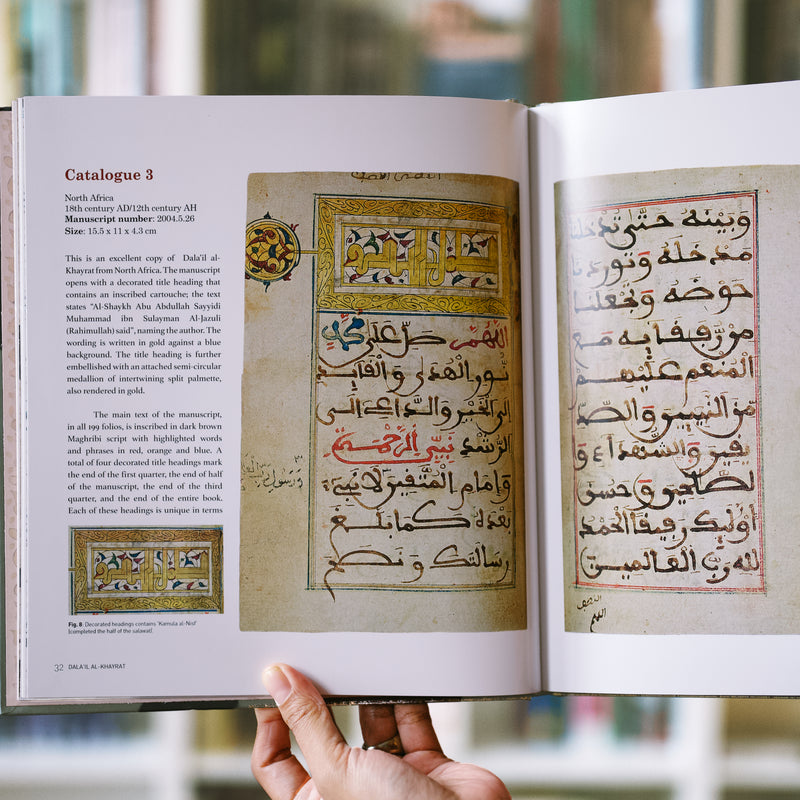 Catalogue 3
North Africa
18th century AD/12th century AH
Manuscript number: 2004.5.26
Size: 15.5 x 11 x 4.3 cm
This is an excellent copy of Dala'il al-
Khayrat from North Africa. The manuscript
opens with a decorated title heading that
contains an inscribed cartouche; the text
states "Al-Shaykh Abu Abdullah Sayyidi
Muhammad ibn Sulayman Al-Jazuli
(Rahimullah) said", naming the author. The
wording is written in gold against a blue
background. The title heading is further
embellished with an attached semi-circular
medallion of intertwining split palmette,
also rendered in gold.
The main text of the manuscript,
in all 199 folios, is inscribed in dark brown
Maghribi script with highlighted words
and phrases in red, orange and blue. A
total of four decorated title headings mark
the end of the first quarter, the end of half
of the manuscript, the end of the third
quarter, and the end of the entire book.
Each of these headings is unique in terms
Fig. 8: Decorated headings contains 'Kamula al-Nisf'
(completed the half of the salawat).
32 DALA'IL AL-KHAYRAT
اللهم صل على محمد
نور الهدى والقايد
إلى الخير والداعي إلى
الرشد نبي الرحمة
وإمام المتقين لا نبي
بعده كما بلغ
رسالتك ونصح
ورسول
وبينه حتى تدخلنا
مدخله وتوردنا
حوضه وتجعلنا
من رفقايه مع
المنعم عليهم
من النبيين والصد
يقين والشهداء و
الصالحين وحسن
أوليك رفيقا الحمد
لله رب العالمين